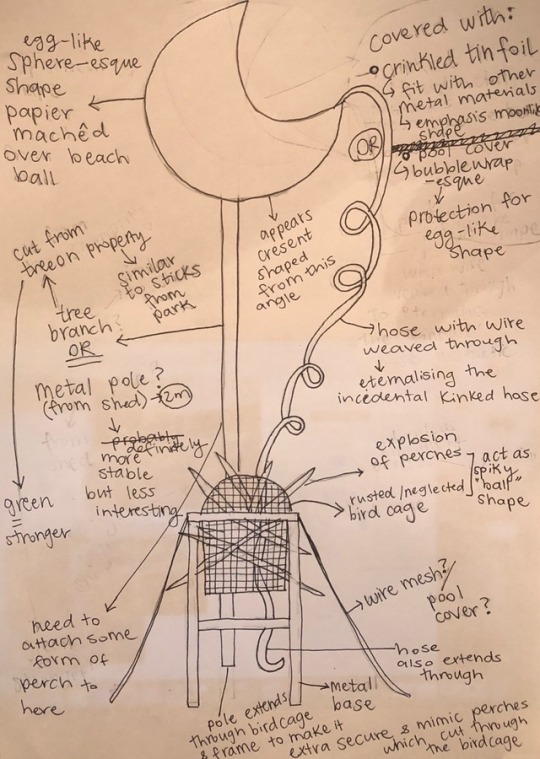 egg-like
sphere-esque
shape
papier
machêd
over beach
ball
covered with:
crinkled tinfoil
fit with other
metal materials
emphasis moonlike
shape
OR
pool cover
bubblewrap
-esque
protection for
egg-like
shape
appears
cresent
shaped
from this
angle
cut from
tree on property
similar
to sticks
from
park
tree
branch?
OR
metal pole?
(from shed) → 2m
probably
definitely
more
stable
but less
interesting
green
=
stronger
hose with wire
weaved through
eternalising the
incedental kinked hose
explosion
of perches
rusted/neglected
bird cage
act as
spiky
"ball"
shape
wire mesh?/
pool
cover?
need to
attach some
form of
perch to
here
hose
also extends
through
metal
base
pole extends
through birdcage
& frame to make it
extra secure & mimic perches
which cut through
the birdcage